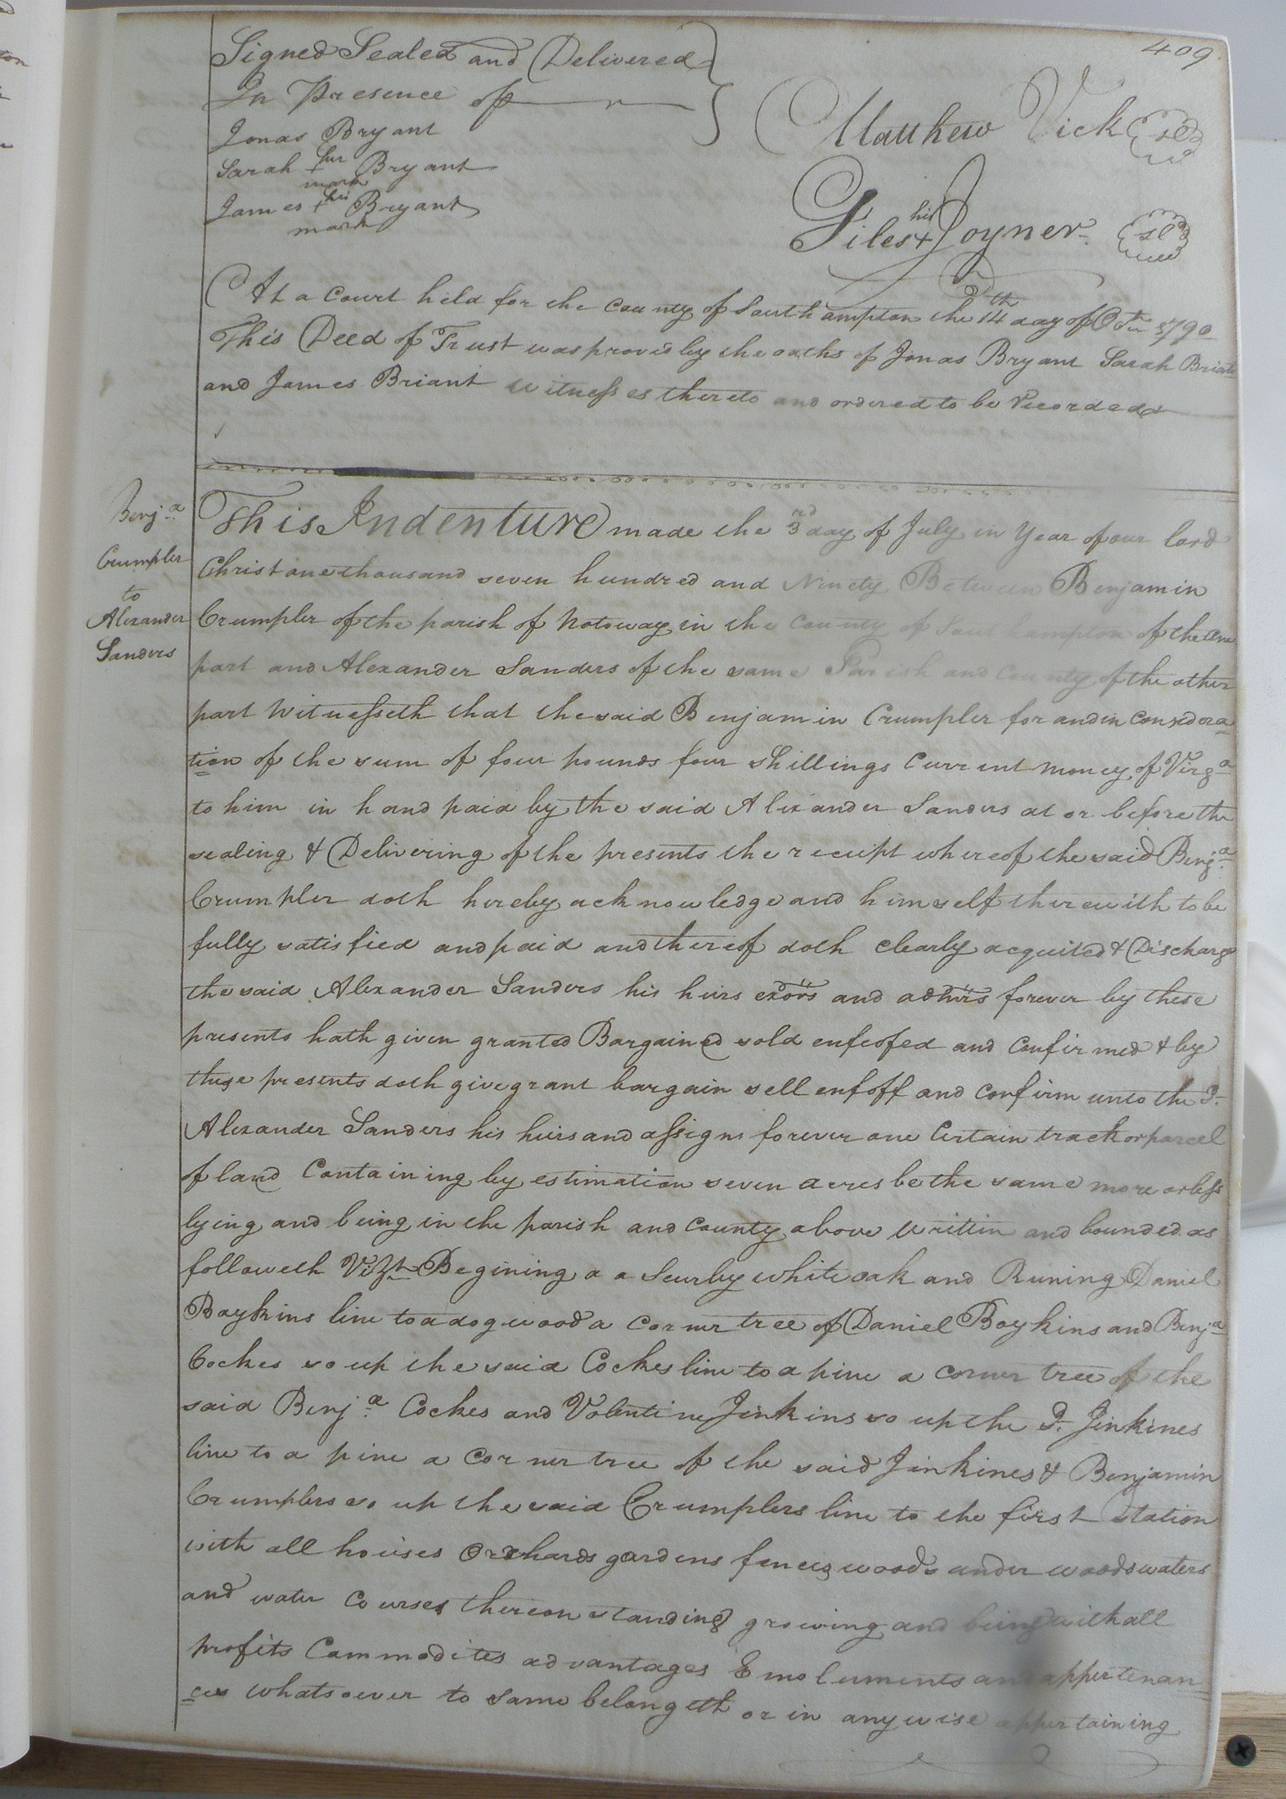 409
Signed Sealed and Delivered
In Presence off
Jonas Bryant
Sarah her + mark Bryant
James his + mark Bryant
Matthew Vick sld
Giles his + Joyner sld
At a Court held for the County of Southampton the 14th day of Octr 1790
This Deed of Trust was proved by the oaths of Jonas Bryant Sarah Briant
and James Briant witnesses thereto and ordered to be Recorded
Benja
Crumpler
to
Alexander
Sanders
This Indenture made the 3rd day of July in Year of our lord
Christ one thousand seven hundred and Ninety Between Benjamin
Crumpler of the parish of Notoway in the County of Southampton of the one
part and Alexander Sanders of the same Parish and County of the other
part Witnesseth that the said Benjamin Crumpler for and in Considera
tion of the sum of four pounds four shillings Current money of Virga
to him in hand paid by the said Alexander Sanders at or before the
sealing & Delivering of the presents the receipt whereof the said Benja
Crumpler doth hereby acknowledge and himself therewith to be
fully satisfied and paid and thereof doth clearly acquited & Discharge
the said Alexander Sanders his heirs exors and admrs forever by these
presents hath given granted Bargained sold enfeofed and Confirmed & by
these presents doth give grant bargain sell enfoff and Confirm unto the Sd
Alexander Sanders his heirs and assigns forever one Certain track or parcel
of land Containing by estimation seven acres be the same more or less
lying and being in the parish and County above writtin and bounded as
followeth Vizt Begining a a Scurby white oak and Runing Daniel
Boykins line to a dogwood a Corner tree of Daniel Boykins and Benja
Cockes so up the said Cockes line to a pine a Corner tree of the
said Benja Cockes and Volentine Jinkins so up the Sd Jinkines
line to a pine a Corner tree of the said Jinkines & Benjamin
Crumplers so up the said Crumplers line to the first Station
with all houses Orchards gardens fences woods under woods waters
and water Courses thereon standing growing and being with all
profits Commodites advantages Emoluments and appertenan
ces whatsoever to same belongeth or in anywise appertaining